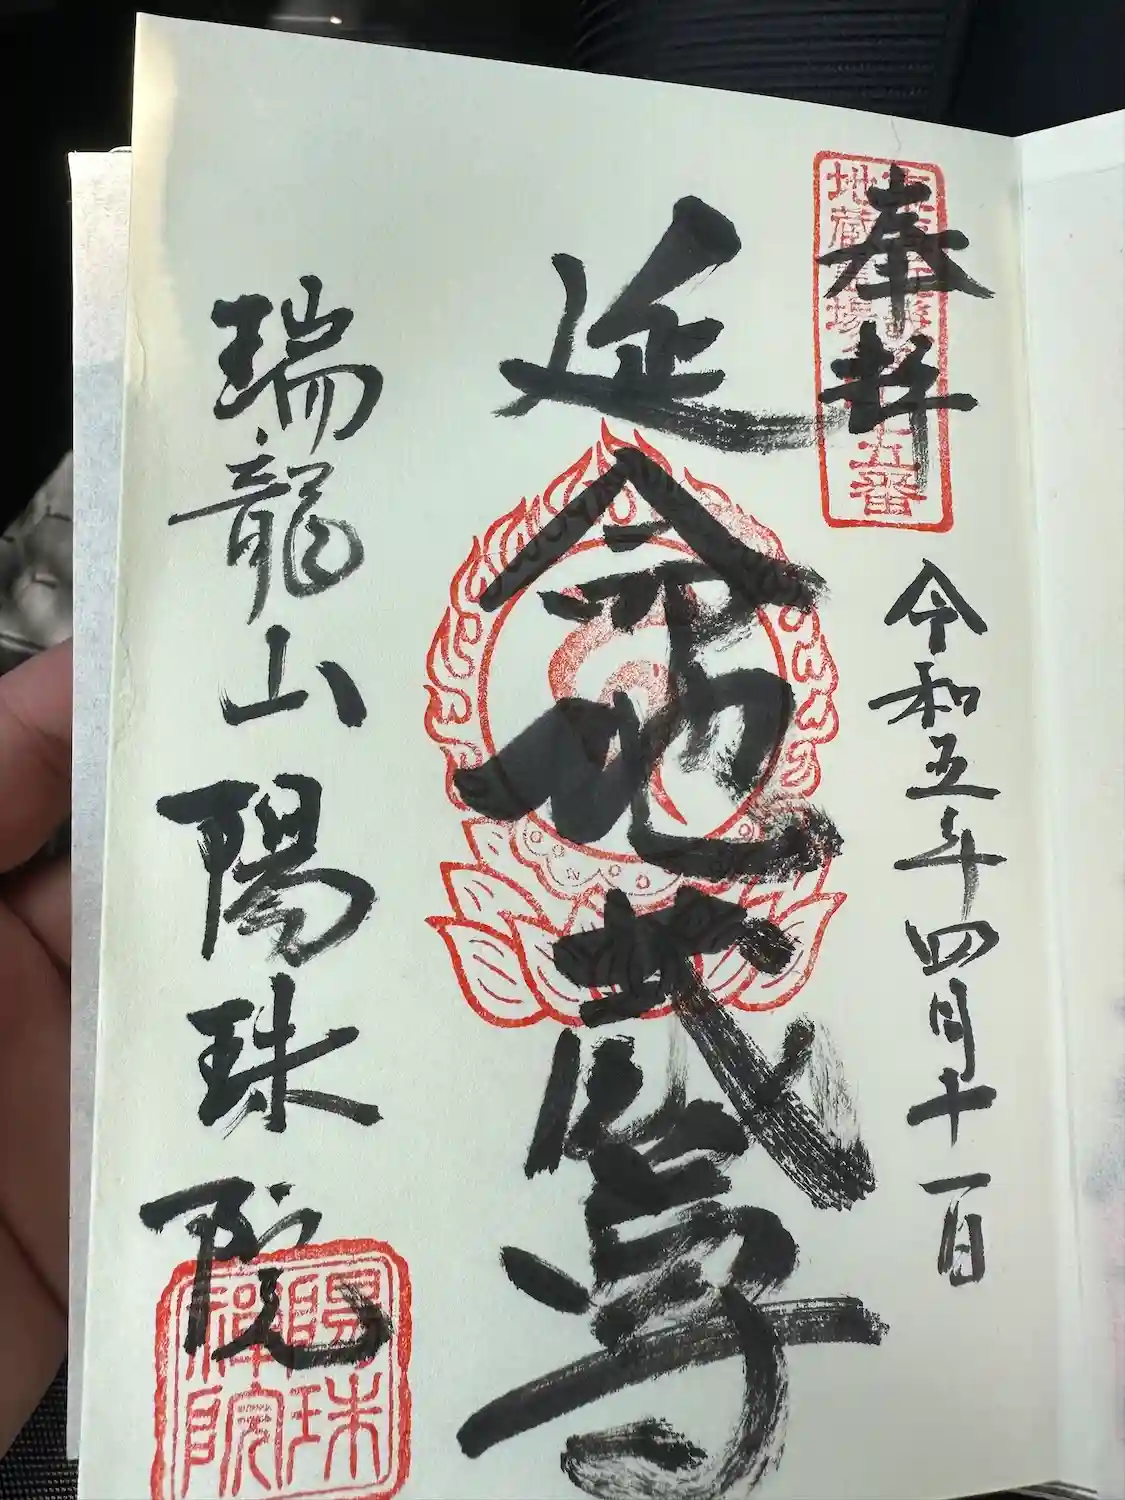 奉拝
五番
令和五年四月十一日
延命地蔵尊
瑞龍山陽珠院
陽珠
禅院